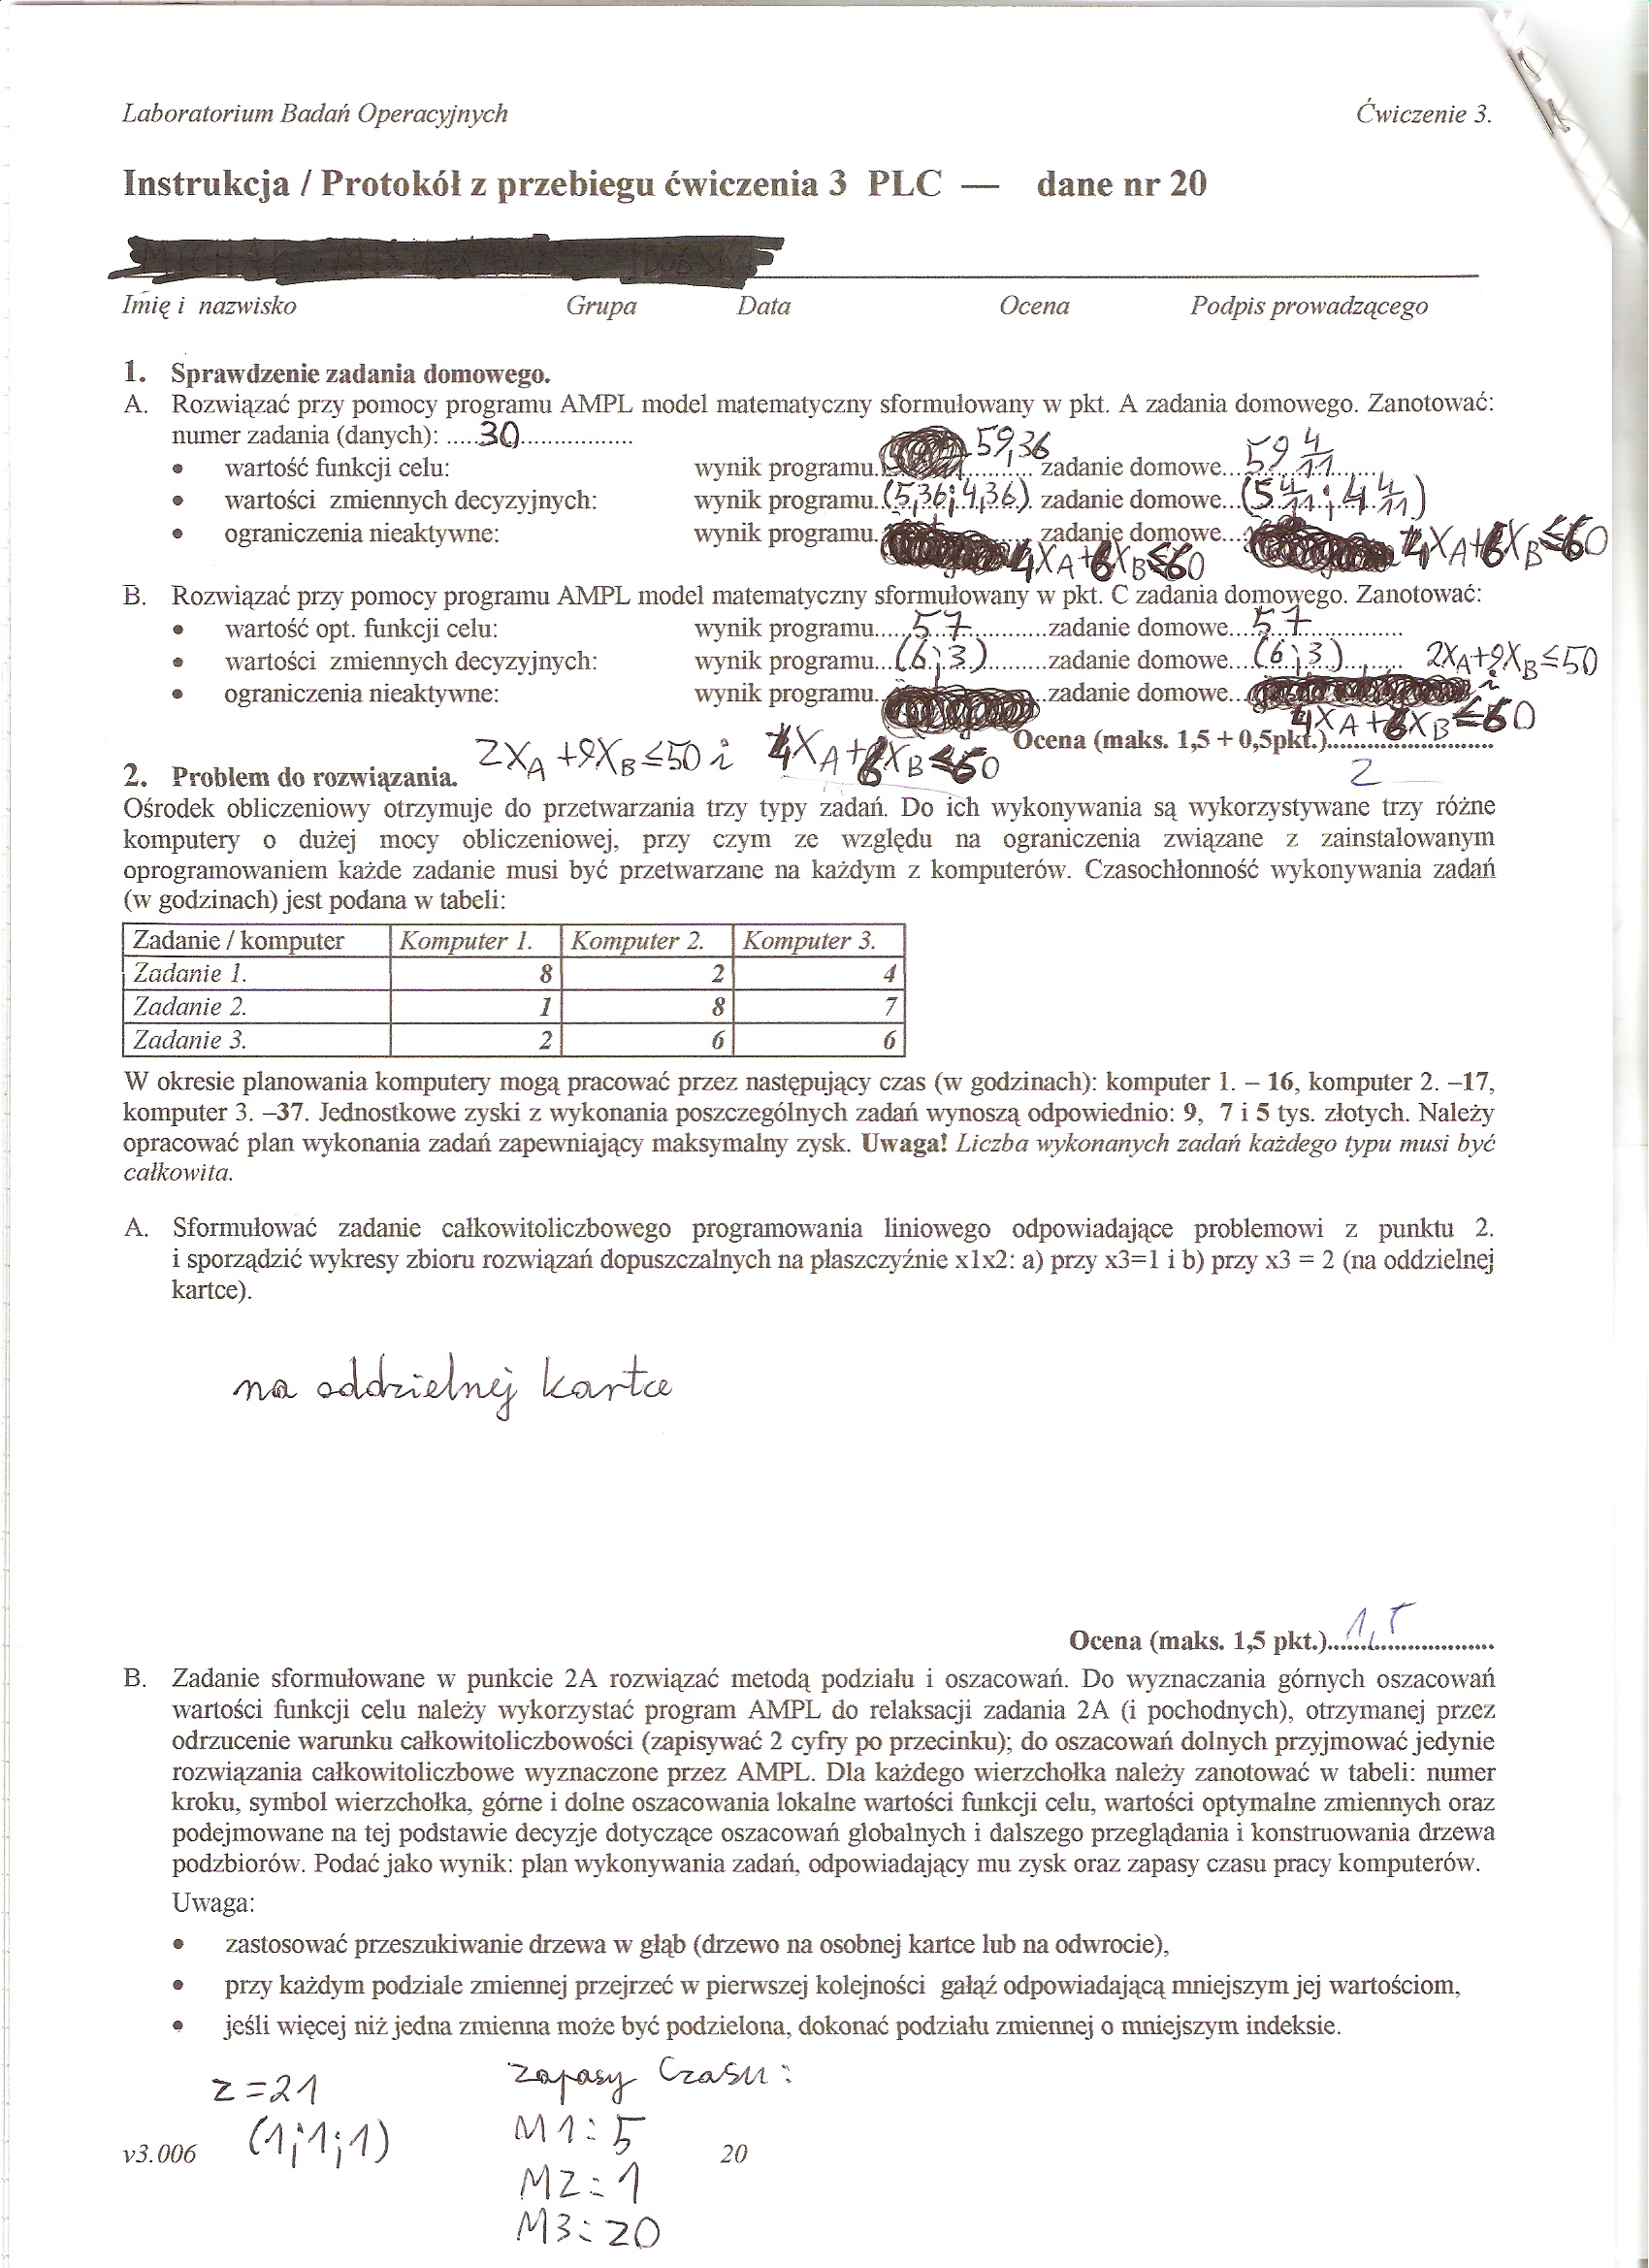 Laboratorium Badań Operacyjnych Ćwiczenie 3.
Instrukcja / Protokół z przebiegu ćwiczenia 3 PLC — dane nr 20
Imię i nazwisko Grupa Data Ocena Podpis prowadzącego
1. Sprawdzenie zadania domowego.
A. Rozwiązać przy pomocy programu AMPL model matematyczny sformułowany w pkt. A zadania domowego. Zanotować:
numer zadania (danych): .....30.................
• wartość funkcji celu: wynik programu. 59,36 zadanie domowe...59 4/11......
• wartości zmiennych decyzyjnych: wynik programu..(5,36; 4,36). zadanie domowe...(5 4/11; 4 4/11)
• ograniczenia nieaktywne: wynik programu. 4XA+6XB≤60 zadanie domowe... 4XA+6XB≤60
B. Rozwiązać przy pomocy programu AMPL model matematyczny sformułowany w pkt. C zadania domowego. Zanotować:
• wartość opt. funkcji celu: wynik programu.....57...........zadanie domowe...57.............
• wartości zmiennych decyzyjnych: wynik programu...(6;3).........zadanie domowe...(6;3)....... 2XA+9XB≤50
• ograniczenia nieaktywne: wynik programu. .zadanie domowe.. i
4XA+6XB≤60
2XA+9XB≤50 i 4XA+6XB≤60 Ocena (maks. 1,5 + 0,5pkt.)..........................
2
2. Problem do rozwiązania.
Ośrodek obliczeniowy otrzymuje do przetwarzania trzy typy zadań. Do ich wykonywania są wykorzystywane trzy różne
komputery o dużej mocy obliczeniowej, przy czym ze względu na ograniczenia związane z zainstalowanym
oprogramowaniem każde zadanie musi być przetwarzane na każdym z komputerów. Czasochłonność wykonywania zadań
(w godzinach) jest podana w tabeli:
Zadanie / komputer Komputer 1. Komputer 2. Komputer 3.
Zadanie 1. 8 2 4
Zadanie 2. 1 8 7
Zadanie 3. 2 6 6
W okresie planowania komputery mogą pracować przez następujący czas (w godzinach): komputer 1. – 16, komputer 2. –17,
komputer 3. –37. Jednostkowe zyski z wykonania poszczególnych zadań wynoszą odpowiednio: 9, 7 i 5 tys. złotych. Należy
opracować plan wykonania zadań zapewniający maksymalny zysk. Uwaga! Liczba wykonanych zadań każdego typu musi być
całkowita.
A. Sformułować zadanie całkowitoliczbowego programowania liniowego odpowiadające problemowi z punktu 2.
i sporządzić wykresy zbioru rozwiązań dopuszczalnych na płaszczyźnie x1x2: a) przy x3=1 i b) przy x3 = 2 (na oddzielnej
kartce).
na oddzielnej kartce
Ocena (maks. 1,5 pkt.)...1,5...................
B. Zadanie sformułowane w punkcie 2A rozwiązać metodą podziału i oszacowań. Do wyznaczania górnych oszacowań
wartości funkcji celu należy wykorzystać program AMPL do relaksacji zadania 2A (i pochodnych), otrzymanej przez
odrzucenie warunku całkowitoliczbowości (zapisywać 2 cyfry po przecinku); do oszacowań dolnych przyjmować jedynie
rozwiązania całkowitoliczbowe wyznaczone przez AMPL. Dla każdego wierzchołka należy zanotować w tabeli: numer
kroku, symbol wierzchołka, górne i dolne oszacowania lokalne wartości funkcji celu, wartości optymalne zmiennych oraz
podejmowane na tej podstawie decyzje dotyczące oszacowań globalnych i dalszego przeglądania i konstruowania drzewa
podzbiorów. Podać jako wynik: plan wykonywania zadań, odpowiadający mu zysk oraz zapasy czasu pracy komputerów.
Uwaga:
• zastosować przeszukiwanie drzewa w głąb (drzewo na osobnej kartce lub na odwrocie),
• przy każdym podziale zmiennej przejrzeć w pierwszej kolejności gałąź odpowiadającą mniejszym jej wartościom,
• jeśli więcej niż jedna zmienna może być podzielona, dokonać podziału zmiennej o mniejszym indeksie.
z=21 zapasy Czasu:
(1;1;1) M1: 5
v3.006 20
M2: 1
M3: 20